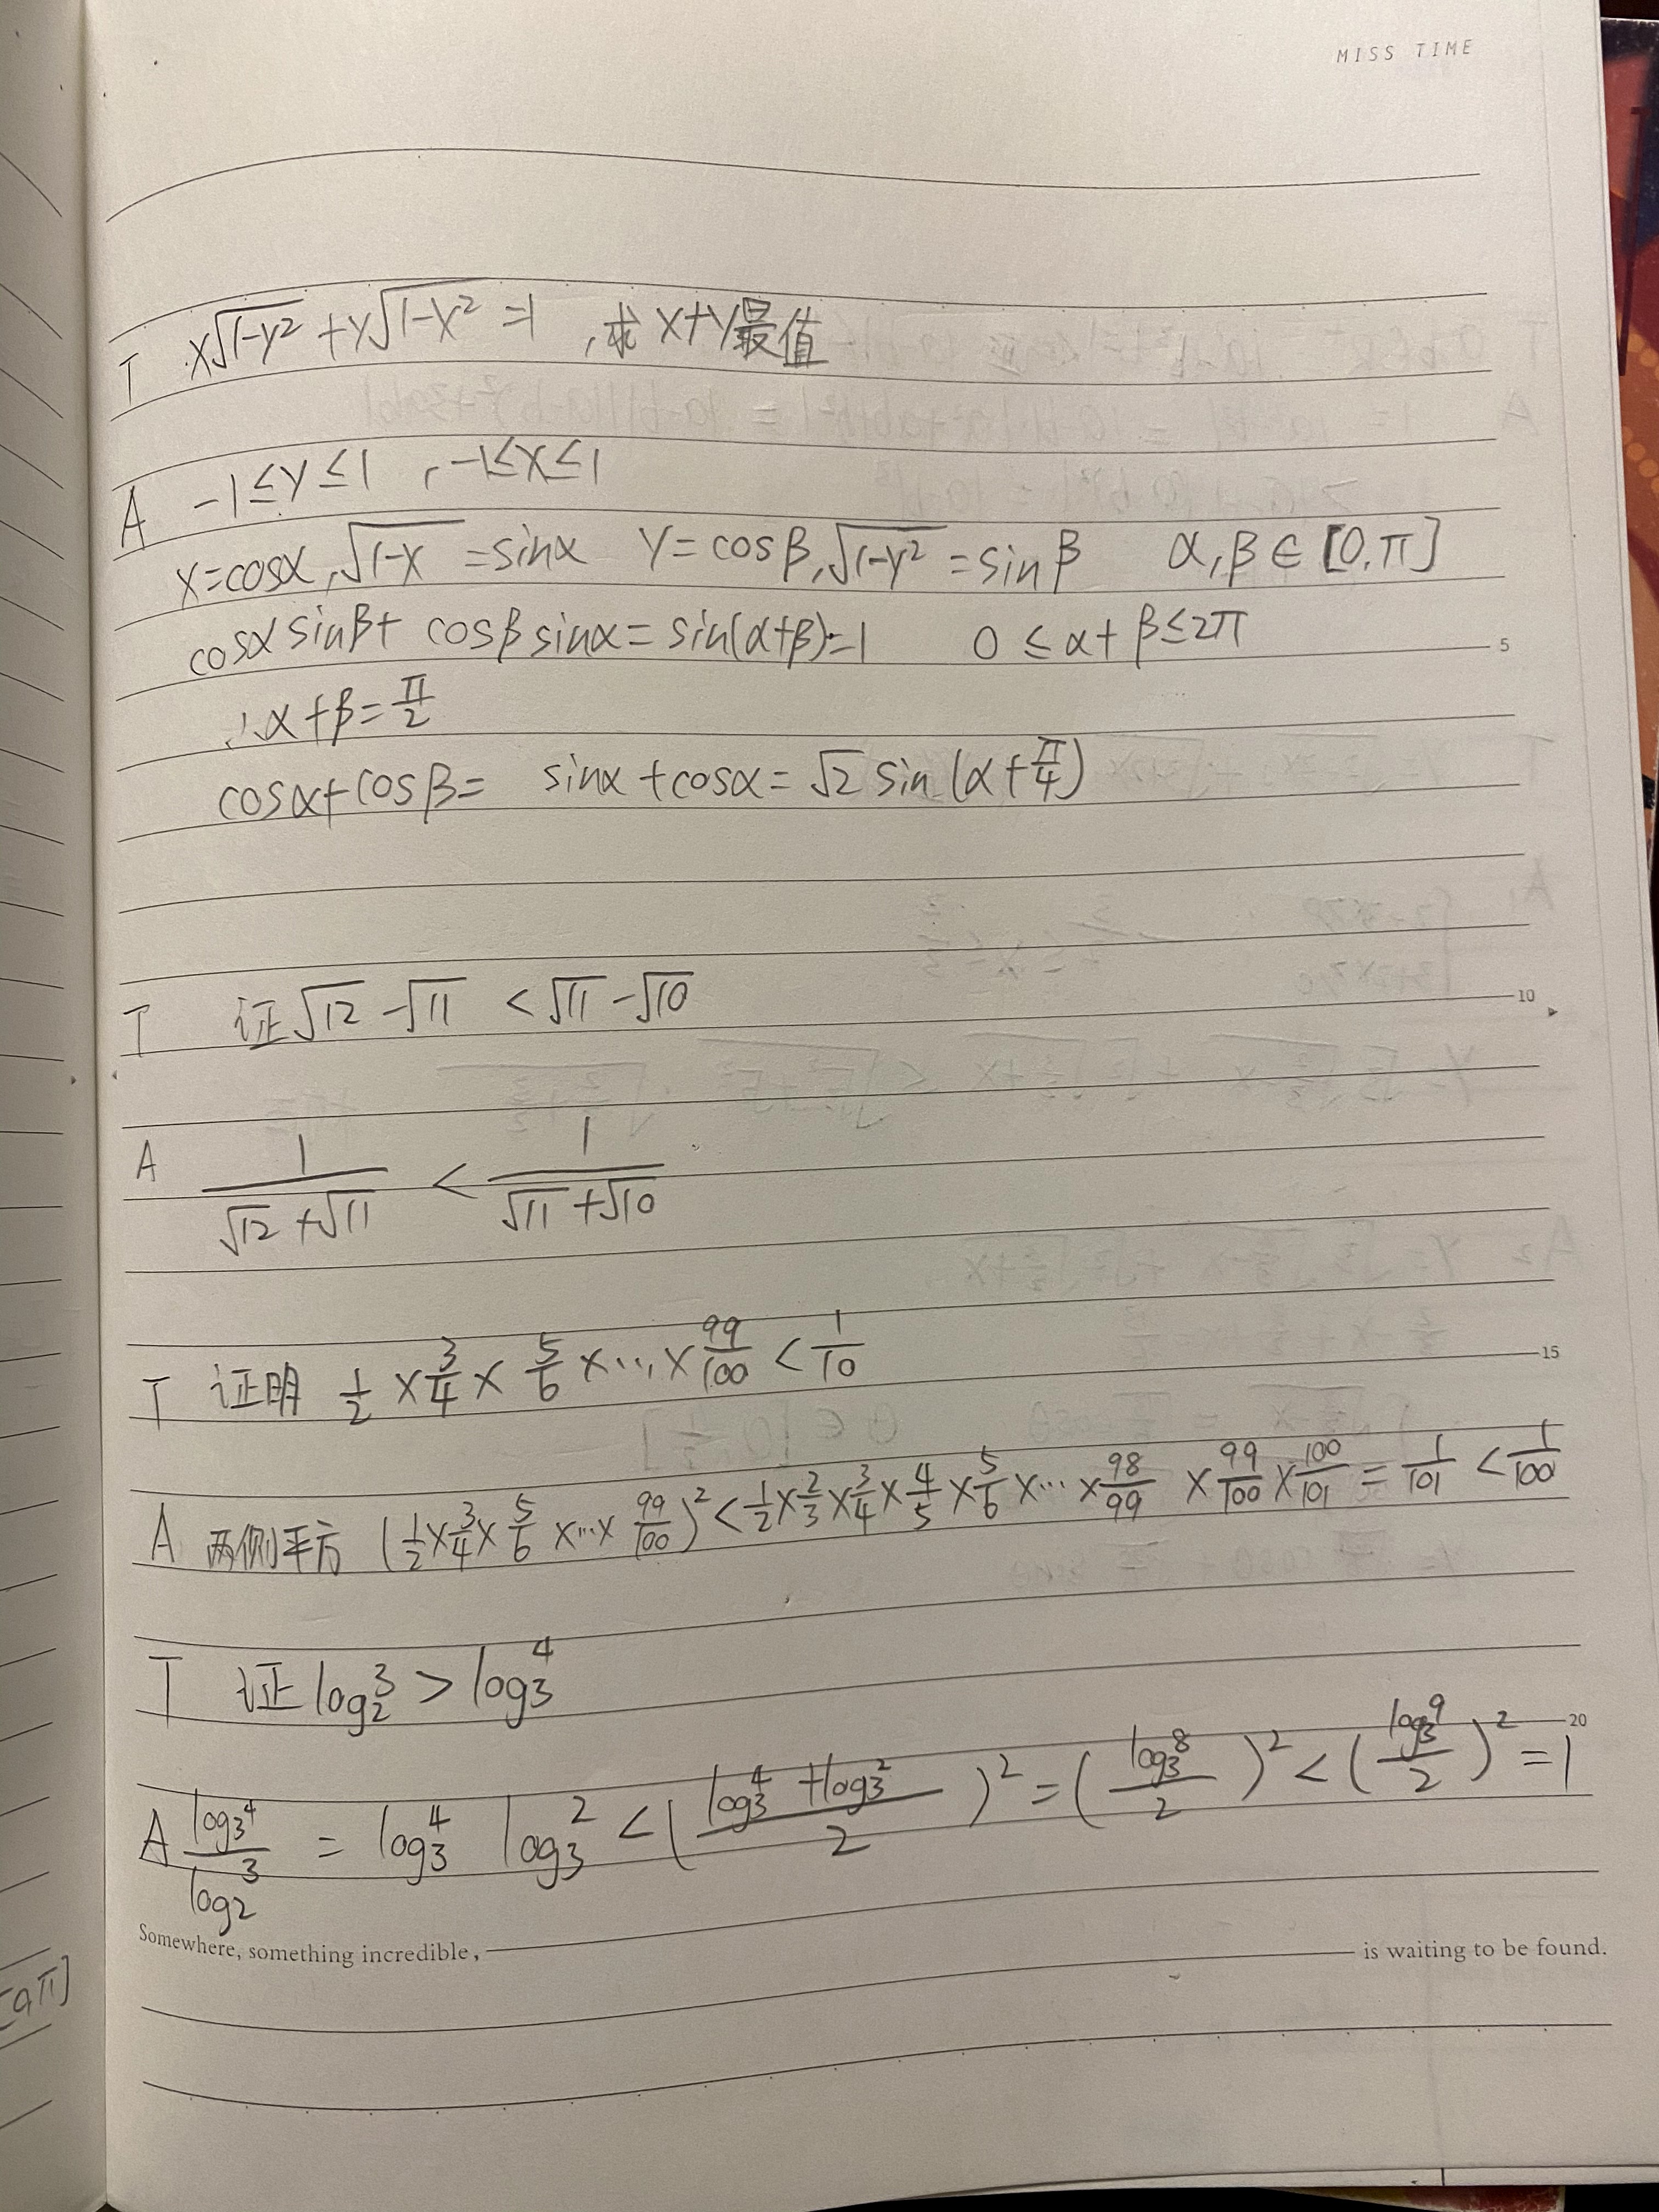 MISS TIME
T x√(1-y²) + y√(1-x²) = 1 , 求 x+y最值
A -1≤y≤1 , -1≤x≤1
x=cosα, √(1-x) = sinα y=cosβ, √(1-y²) = sinβ α,β∈[0,π]
cosα sinβ + cosβ sinα = sin(α+β) = 1 0≤α+β≤2π
5
∴ α+β = π/2
cosα+cosβ = sinα+cosα = √2 sin(α+π/4)
T 证 √12 - √11 < √11 - √10
10
A 1/(√12+√11) < 1/(√11+√10)
T 证明 1/2 × 3/4 × 5/6 × ... × 99/100 < 1/10
15
A 两侧平方 (1/2 × 3/4 × 5/6 × ... × 99/100)² < 1/2 × 2/3 × 3/4 × 4/5 × 5/6 × ... × 98/99 × 99/100 × 100/101 = 1/101 < 1/100
T 证 log₂³ > log₃⁴
20
A log₃⁴/log₂³ = log₃⁴ log₃² < ((log₃⁴ + log₃²)/2)² = (log₃⁸/2)² < (log₃⁹/2)² = 1
Somewhere, something incredible, is waiting to be found.